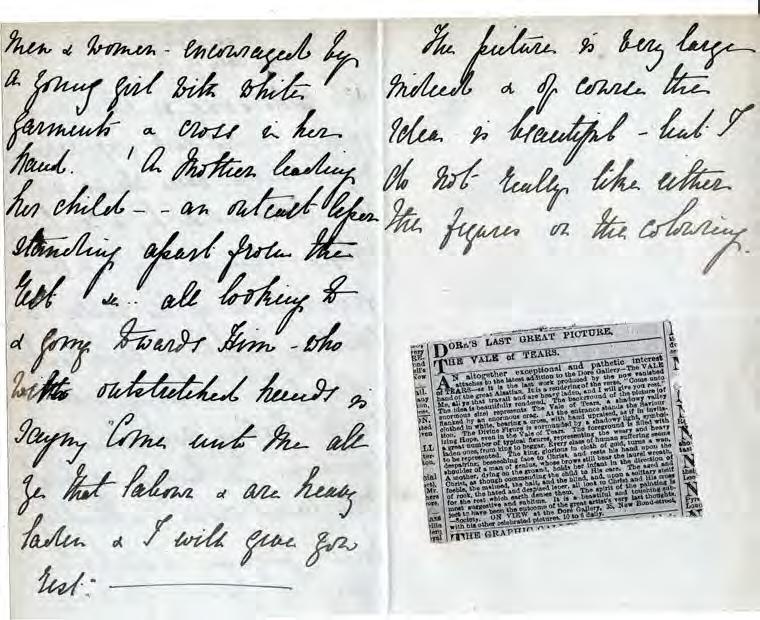 men & women - encouraged by
a young girl with white
garments & cross in her
hand. ' A Mother leading
her child - - an outcast leper
standing apart from the
rest &.. all looking to
& going towards Him - who
with outstretched hands is
saying "Come unto Me all
ye that labour & are heavy
laden & I will give you
rest."
The picture is very large
indeed & of course the
idea is beautiful - but I
do not really like either
the figures or the colouring.
DORÉ'S LAST GREAT PICTURE,
THE VALE OF TEARS.
AN altogether exceptional and pathetic interest
attaches to the latest addition to the Doré Gallery—The VALE
of TEARS—it is the last work produced by the now vanished
hand of the great Alsatian. It is a rendering of the verse, "Come unto
Me, all ye that travail and are heavy laden, and I will give you rest."
The idea is beautifully rendered. The background of the picture
represents The Vale of Tears. A shadowy valley
flanked by an enormous
robed in white, bearing a cross, with hand upraised, as if in invita-
tion. The Divine Figure is surrounded by a
ing Hope, even in the Vale of Tears. The foreground is filled with
a great number of typical figures, representing the weary and heavy
laden ones, from king to beggar. Every class of human suffering seems
to be represented. The king, glorious in cloth of gold, turns a wan,
despairing, beseeching face to Christ, and rests his hand upon the
shoulder of a man of genius, whose brows still bear the laurel wreath.
A mother, dying on the ground, holds her infant in the direction of
Christ, as though commending the child to His care. The aged and
feeble, the maimed, the halt, and the blind, and, upon a solitary shelf
of rock, the hated and despised leper, all look to Christ and His cross
for the rest which earth denies them. The spirit of the painting is
most suggestive and solemn. It is a beautiful and touching sub-
ject to have been the outcome of the great artist's very last thoughts.
—Society. ON VIEW at the Doré Gallery, 35, New Bond-street,
with his other celebrated pictures. 10 to 6 daily.
THE GRAPHIC